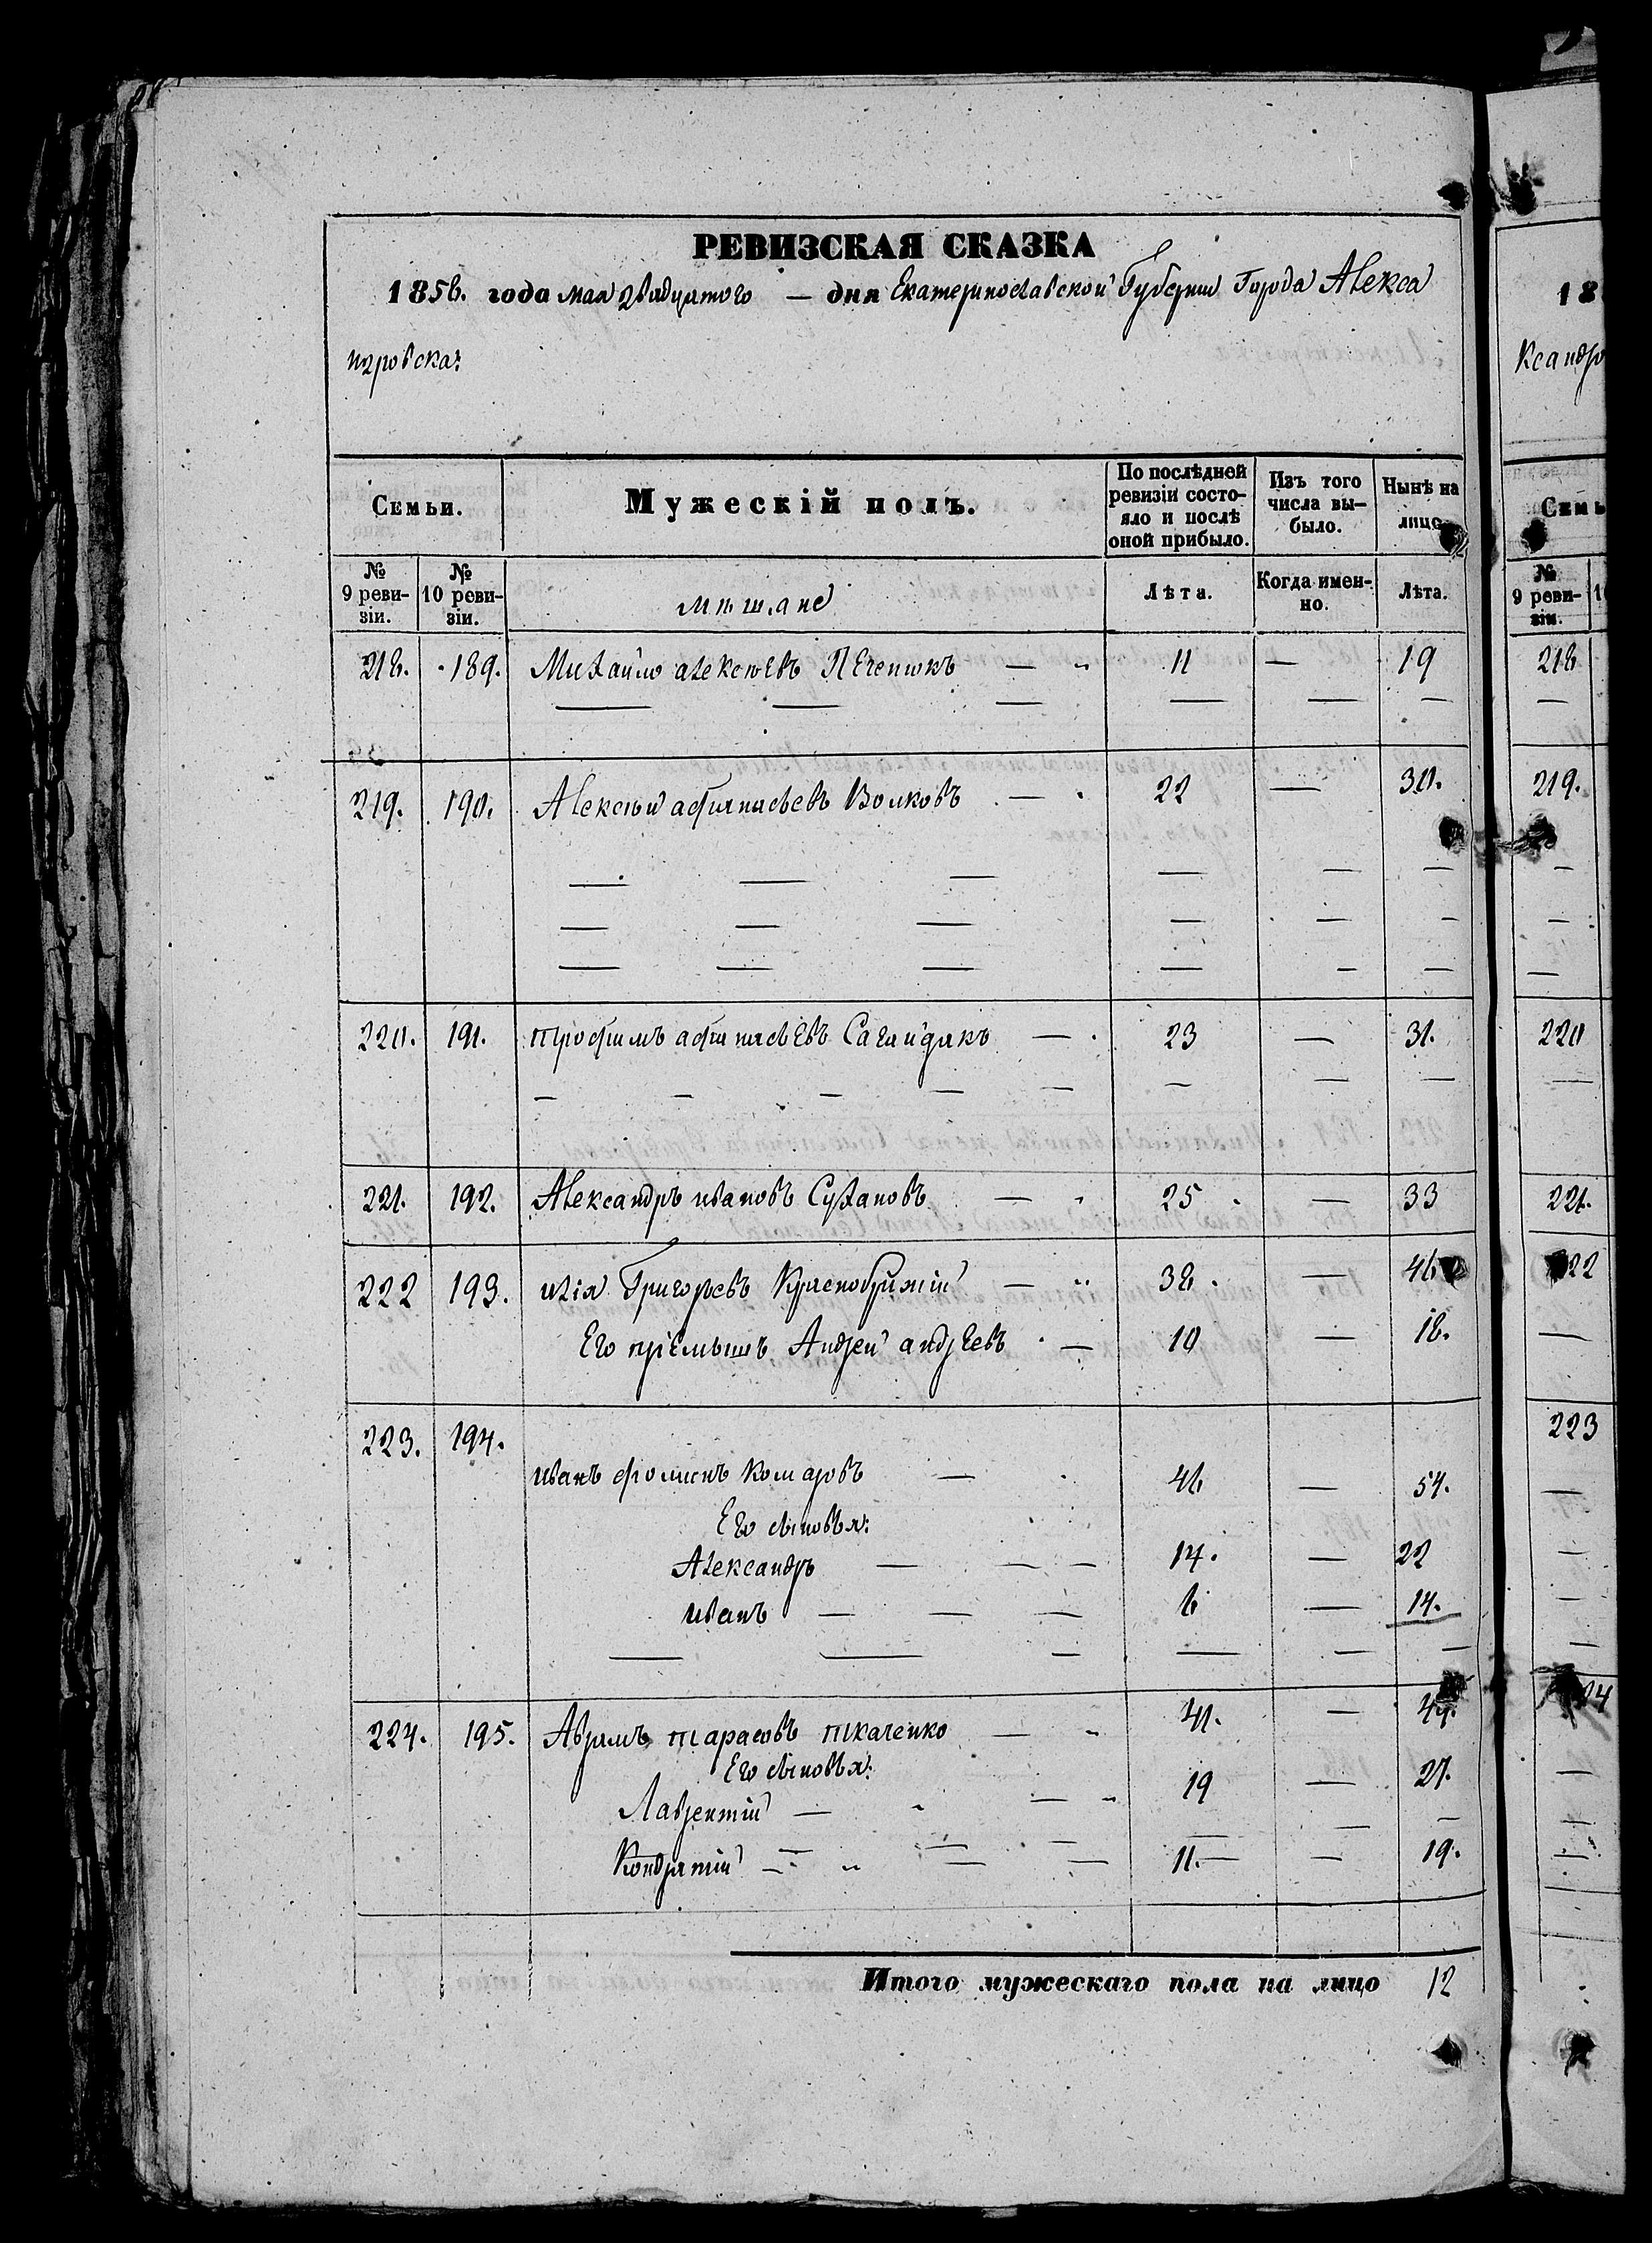 РЕВИЗСКАЯ СКАЗКА
1858. года мая двадцатого — дня Екатеринославской Губернии Города Алекса
ндровска:
Семьи. Мужескій полъ. По послѣдней ревизіи состояло и послѣ оной прибыло. Изъ того числа выбыло. Нынѣ на лицо
№ 9 ревизіи. № 10 ревизіи. мѣщане Лѣта. Когда именно. Лѣта.
218. 189. Михайло алексѣевъ Печенюкъ — 11 — 19
219. 190. Алексѣй афанасьевъ Волковъ — 22 — 30.
220. 191. трофимъ афанасьевъ Сагайдакъ — 23 — 31.
221. 192. Александръ ивановъ Сухановъ — 25 — 33
222 193. илія Григорьевъ Краснобрижій — 38. — 46
Его пріемышъ Андрей андреевъ — 10 — 18.
223. 194.
иванъ фоминъ Комаровъ — 46 — 54.
Его сыновья:
Александръ — 14. — 22
иванъ — 6 — 14.
224. 195. Аврамъ тарасовъ ткаченко — 41. — 49.
Его сыновья:
Лаврентій — 19 — 27.
Кондратій — 11. — 19.
Итого мужескаго пола на лицо 12
18
ксандро
Семь
№ 9 ревизіи.
218
219.
220
221.
222
223
224